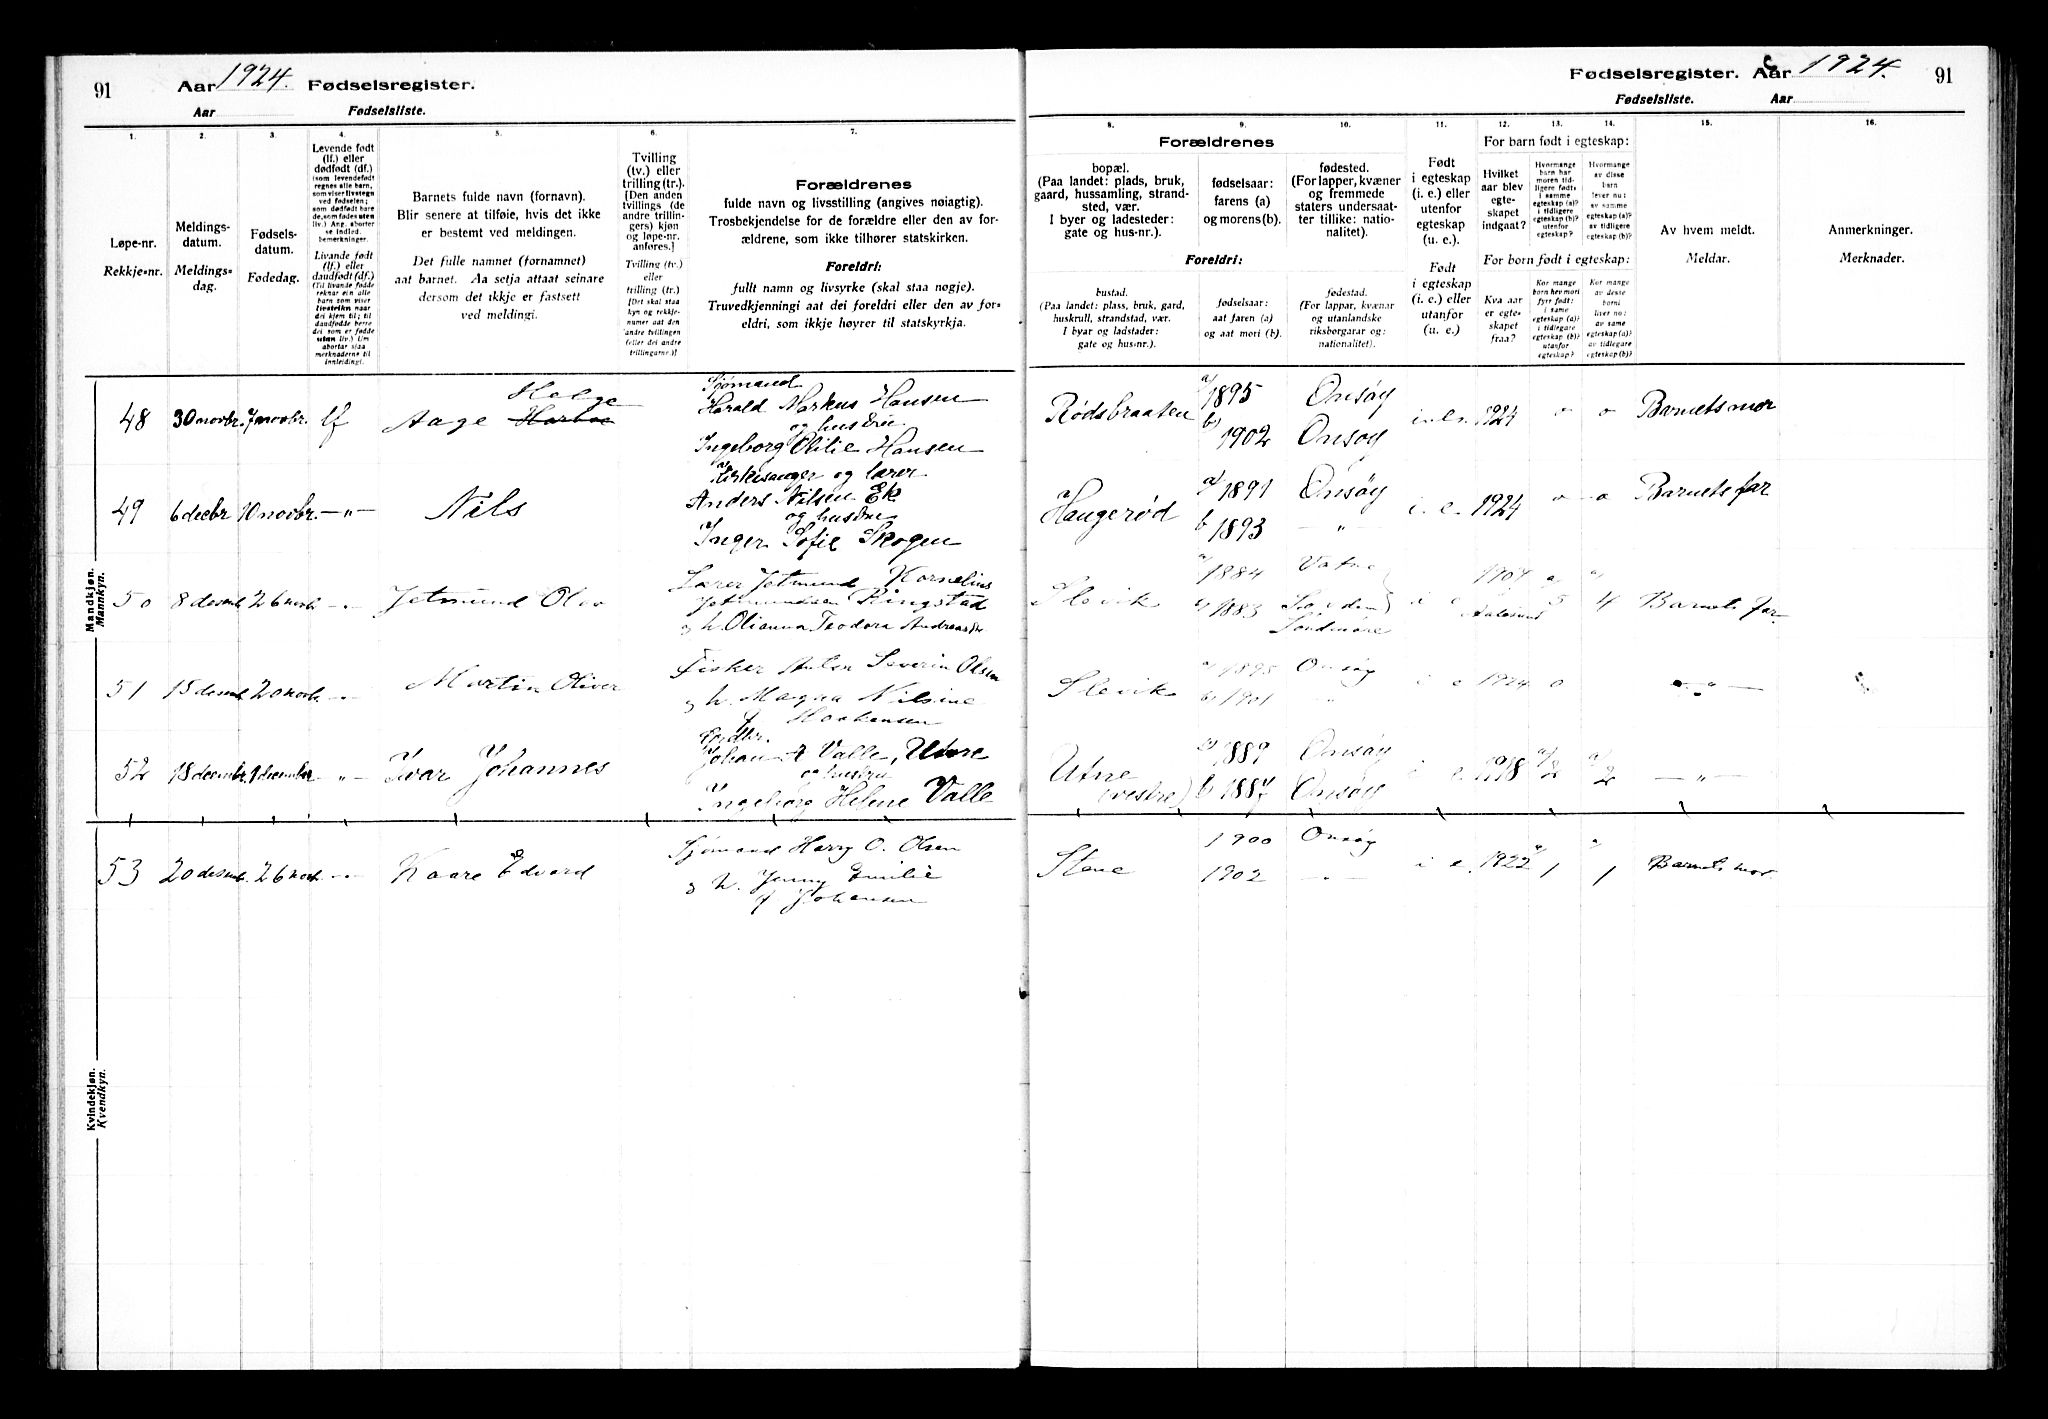 91
Aar 1924. Fødselsregister.
Aar Fødselsliste.
Fødselsregister. Aar 1924. 91
Fødselsliste. Aar
1. 2. 3. 4. 5. 6. 7.
Løpe-nr.
Rekkje-nr.
Meldings-
datum.
Meldings-
dag.
Fødsels-
datum.
Fødedag.
Levende født
(lf.) eller
dødfødt (df.)
Livande født
(lf.) eller
daudfødt (df.)
Barnets fulde navn (fornavn).
Blir senere at tilføie, hvis det ikke
er bestemt ved meldingen.
Det fulle namnet (fornamnet)
aat barnet. Aa setja attaat seinare
dersom det ikkje er fastsett
ved meldingi.
Tvilling
(tv.) eller
trilling (tr.).
[Den anden
tvillings (de
andre trillin-
gers) kjøn
og løpe-nr.
anføres.]
Tvilling (tv.)
eller
trilling (tr.)
[Det skal staa
kyn og rekkje-
numer aat den
andre tvillingen
(eller dei andre
trillingarne.)]
Forældrenes
fulde navn og livsstilling (angives nøiagtig).
Trosbekjendelse for de forældre eller den av for-
ældrene, som ikke tilhører statskirken.
Foreldri:
fullt namn og livsyrke (skal staa nøgje).
Truvedkjenningi aat dei foreldri eller den av for-
eldri, som ikkje høyrer til statskyrkja.
8. 9. 10. 11. 12. 13. 14. 15. 16.
Forældrenes
bopæl.
(Paa landet: plads, bruk,
gaard, hussamling, strand-
sted, vær.
I byer og ladesteder:
gate og hus-nr.).
fødselsaar:
farens (a)
og morens (b).
fødested.
(For lapper, kvæner
og fremmede
staters undersaat-
ter tillike: natio-
nalitet).
Foreldri:
bustad.
(Paa landet: plass, bruk, gard,
huskrull, strandstad, vær.
I byar og ladstader:
gate og hus-nr.).
fødselsaar:
aat faren (a)
og aat mori (b).
fødestad.
(For lappar, kvænar
og utanlandske
riksborgarar og:
nationalitet).
Født
i egteskap
(i. e.) eller
utenfor
egteskap
(u. e.).
Født
i egteskap
(i. e.) eller
utanfor
(u. e.)
For barn født i egteskap:
Hvilket
aar blev
egte-
skapet
indgaat?
Hvormange
barn har
moren tid-
ligere født:
i samme
egteskap (a)?
i tidligere
egteskap (b)?
utenfor
egteskap?
Hvormange
av disse
barn
lever nu:
av samme
egteskap (a)?
av tidligere
egteskap (b)?
For born født i egteskap:
Kva aar
er egte-
skapet
fraa?
Kor mange
born hev mori
fyrr født:
i same
egteskap (a)?
i tidlegare
egteskap (b)?
utanfor
egteskap?
Kor mange
av desse
borni
liver no:
av same
egteskap (a)?
av tidlegare
egteskap (b)?
Av hvem meldt.
Meldar.
Anmerkninger.
Merknader.
Mandkjøn.
Mannkyn.
48 30 novbr. 7 novbr. lf Aage Helge Sjømand
Harald Markus Hansen
og hustru
Ingeborg Otilie Hansen
Rødsbraaten a) 1895 Onsøy 1924 0 0 Barnets mor
b) 1902 Onsøy
49 6 decbr 10 novbr. — " — Nils Kirkesanger og lærer
Anders Nilsen Ek
og hustru
Inger Sofie Skogen
Haugerød a) 1891 Onsøy i. e. 1924 0 0 Barnets far
b 1893 — " —
50 8 desemb. 26 novb. Jetmund Olav Lærer Jetmund Kornelius
Jetmundsen Ringstad
og h. Olianna Teodora
Slevik a) 1884 Vatne i e 1907 a) 5 a) 4 Barnets far.
b) 1883 Søndmøre Aalesund
51 15 desemb. 20 novb. Martin Oliver Fisker Anton Severin Olsen
og h. Magna Nilsine
f. Haakensen
Slevik a) 1895 Onsøy i e 1924 0 — " —
b) 1901 "
52 18 decembr. 1 december " Ivar Johannes
Johan A Valle, Utne
og hustru
Ingeborg Helene Valle
Utne a) 1889 Onsøy i e. 1918 a) 2 a) 2 — " —
(vestre) b) 1887 Onsøy
53 20 desemb. 26 novb. Kaare Edvard Sjømand Harry O. Olsen
og h. Jenny Emilie
f Johansen
Stene 1900 Onsøy i e. 1922 a) 1 a) 1 Barnets mor.
1902 — " —
Kvindekjøn.
Kvendkyn.